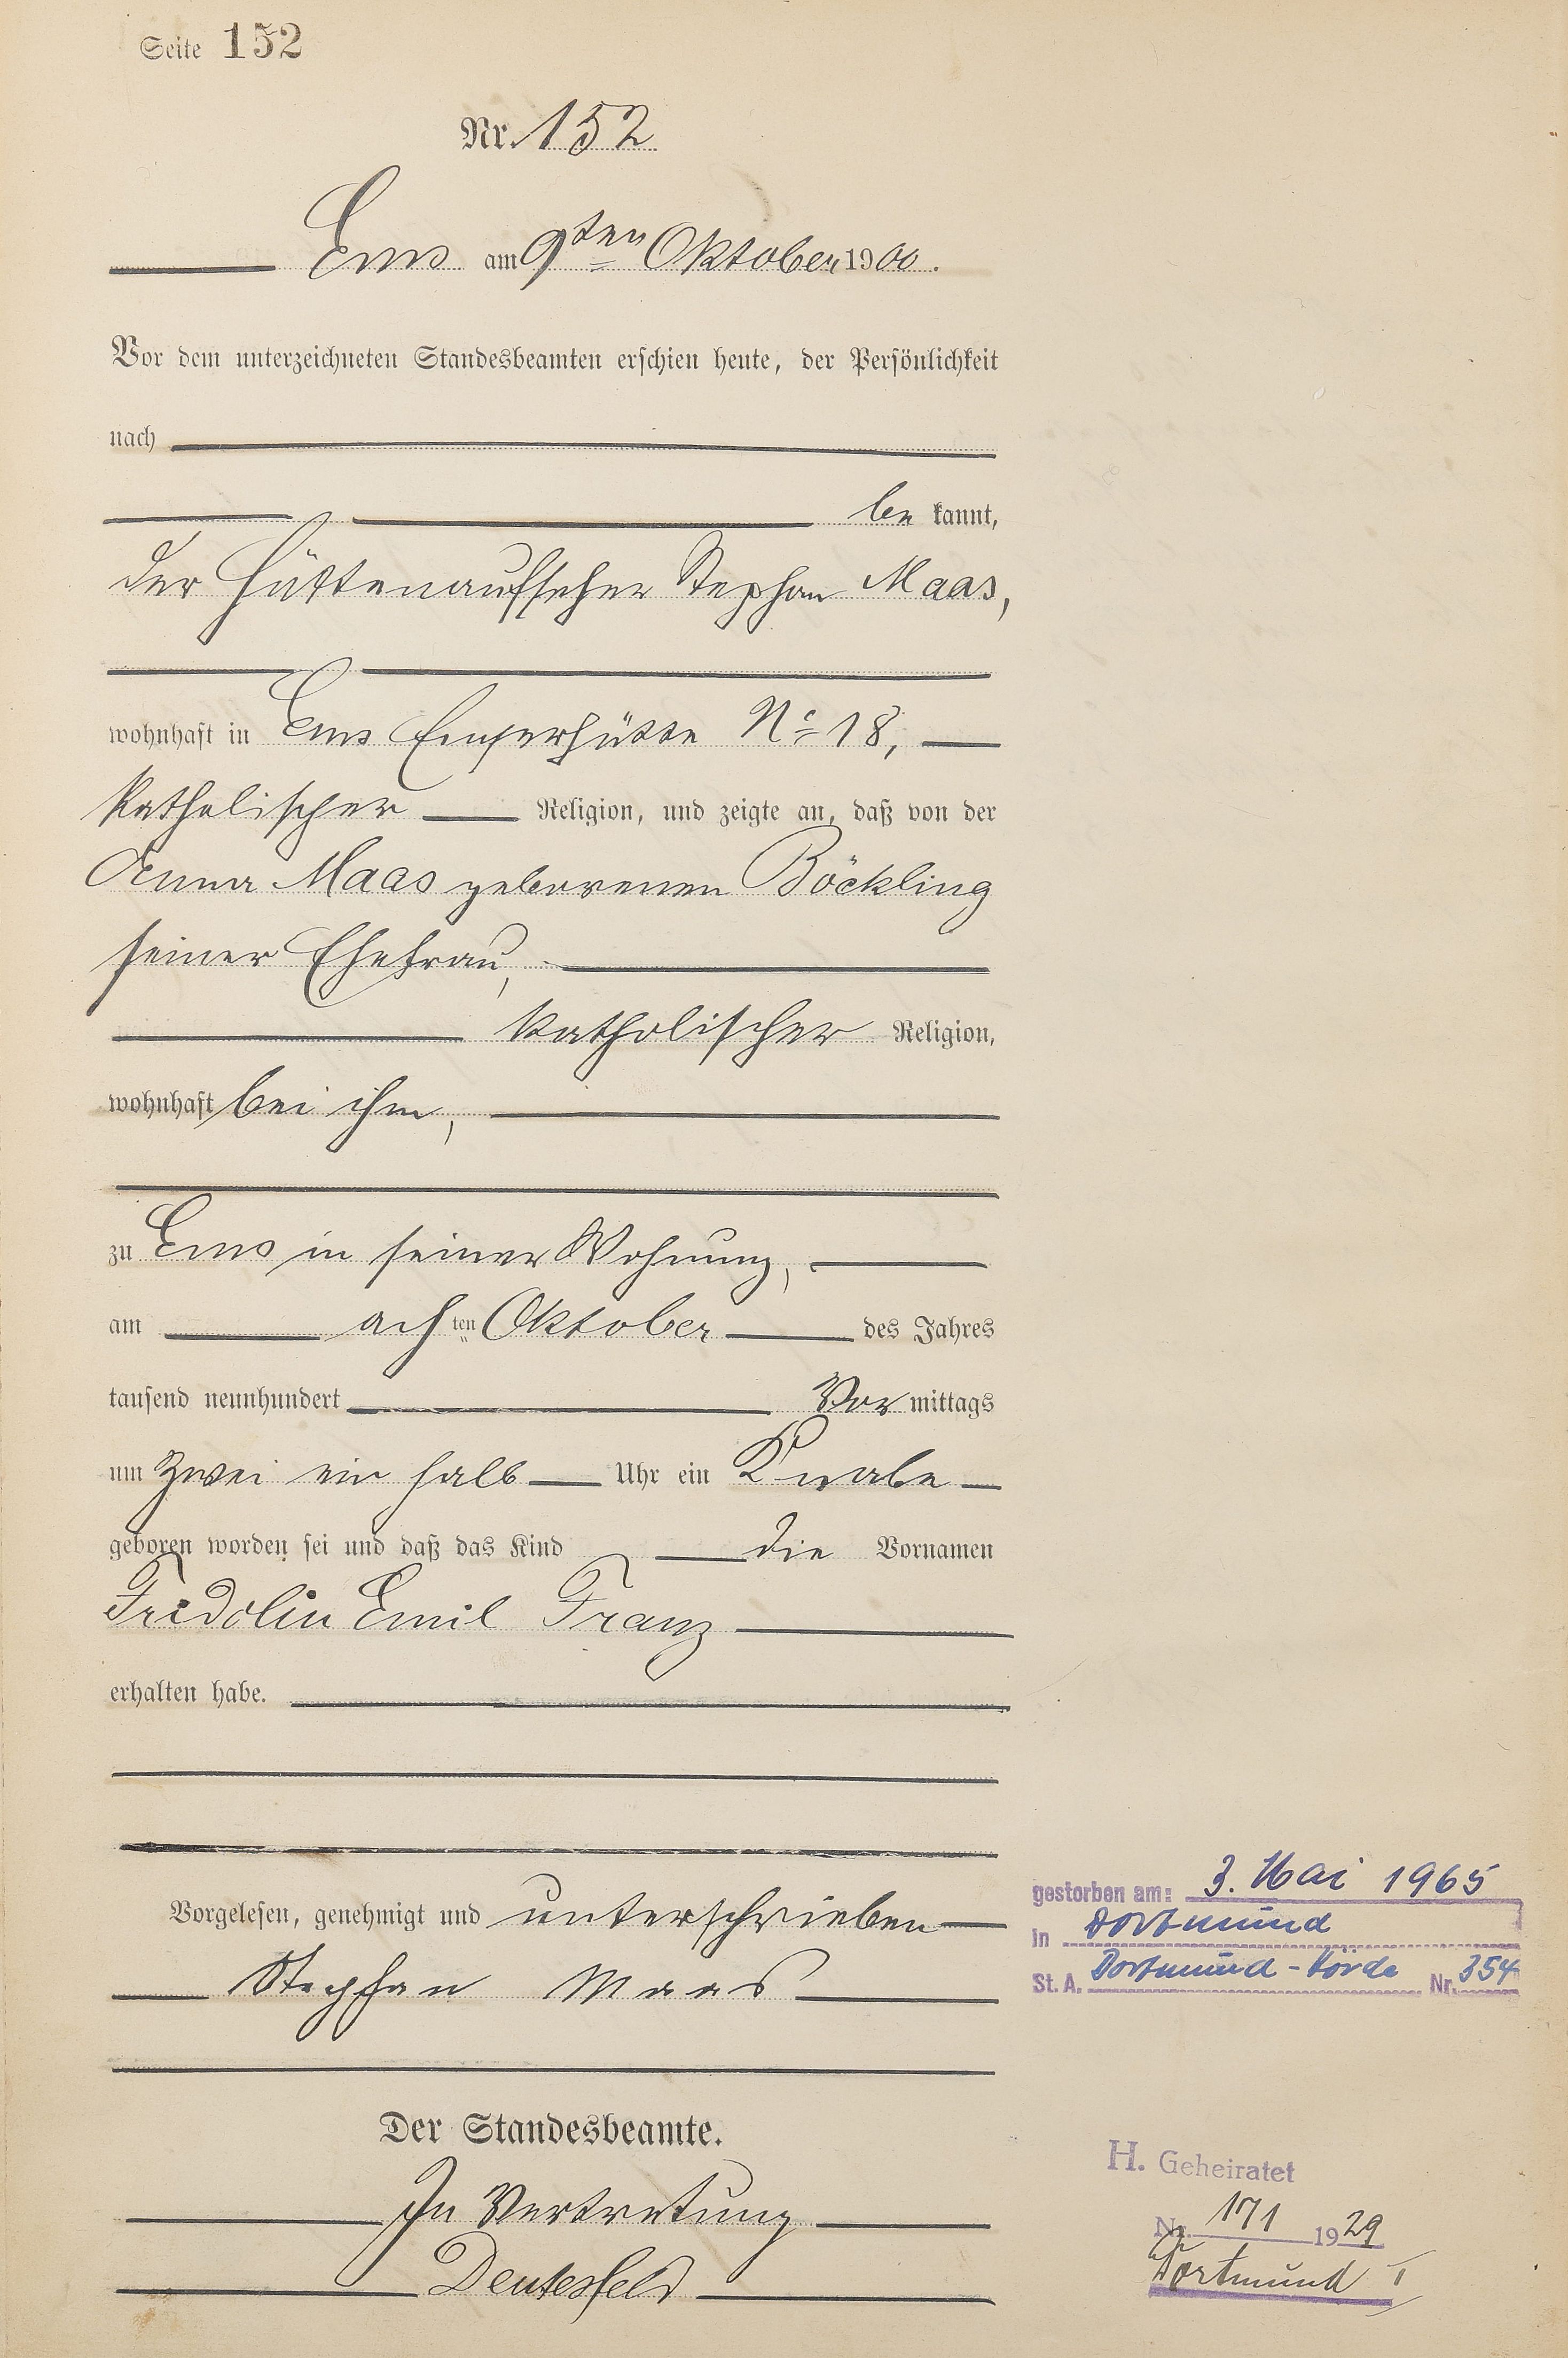 Seite 152
Nr. 152
Ems am 9ten Oktober 1900.
Vor dem unterzeichneten Standesbeamten erschien heute, der Persönlichkeit
nach
be kannt,
der Hüttenaufseher Stephan Maas,
wohnhaft in Ems Emserhütte No 18,
katholischer Religion, und zeigte an, daß von der
Anna Maas geborenen Böckling
seiner Ehefrau,
katholischer Religion,
wohnhaft bei ihm,
zu Ems in seiner Wohnung,
am achten Oktober des Jahres
tausend neunhundert Vor mittags
um zwei ein halb Uhr ein Knabe
geboren worden sei und daß das Kind die Vornamen
Fridolin Emil Franz
erhalten habe.
Vorgelesen, genehmigt und unterschrieben
Stephan Maas
Der Standesbeamte.
In Vertretung
Deutesfeld
gestorben am: 3. Mai 1965
in Dortmund
St. A. Dortmund-Hörde Nr. 354
H. Geheiratet
Nr. 171 1929
Dortmund I